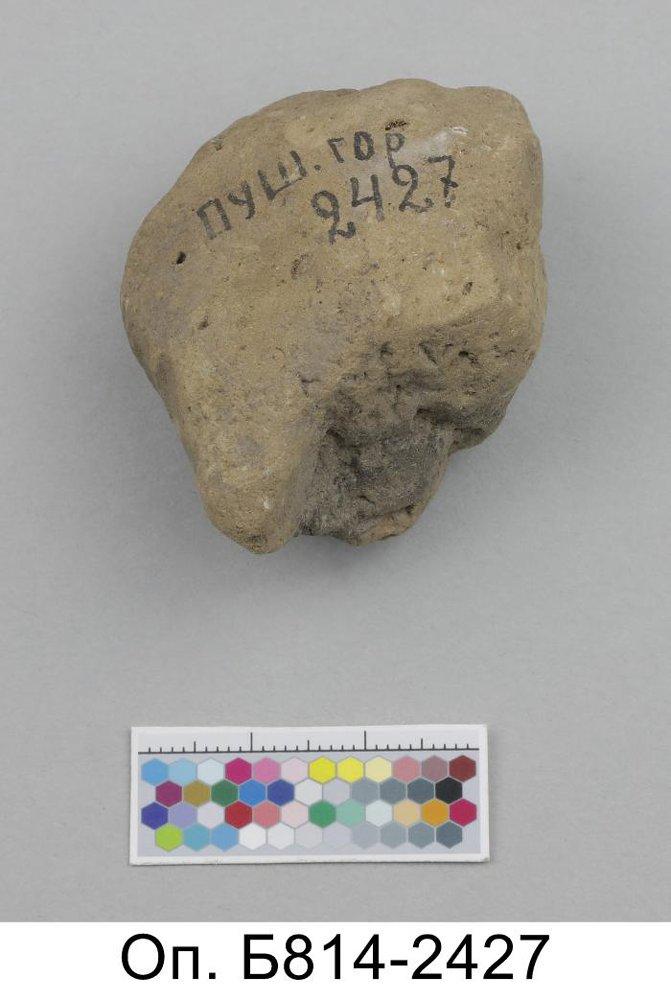 ПУШ. ГОР
2427
Оп. Б814-2427